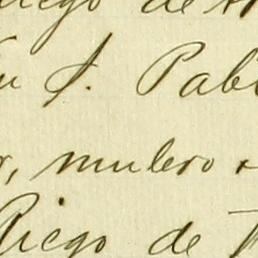 Riego de
S. Pabl
mulero
Riego de